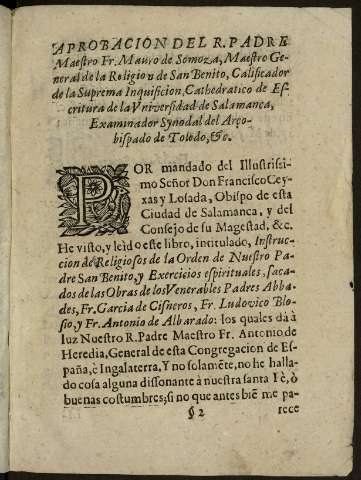 APROBACION DEL R.PADRE
Maestro Fr. Mauro de Somoza, Maestro Ge-
neral de la Religion de San Benito, Calificador
de la Suprema Inquisicion, Cathedratico de Es-
critura de la Vniversidad de Salamanca,
Examinador Synodal del Arço-
bispado de Toledo, &c.
POR mandado del Illustrissi-
mo Señor Don Francisco Cey-
xas y Losada, Obispo de esta
Ciudad de Salamanca, y del
Consejo de su Magestad, &c.
He visto, y leido este libro, intitulado, Instruc-
cion de Religiosos de la Orden de Nuestro Pa-
dre San Benito, y Exercicios espirituales, saca-
dos de las Obras de los Venerables Padres Abba-
des, Fr. Garcia de Cisneros, Fr. Ludovico Blo-
sio, y Fr. Antonio de Albarado: los quales dà à
luz Nuestro R. Padre Maestro Fr. Antonio de
Heredia, General de esta Congregacion de Es-
paña, è Ingalaterra, Y no solamẽte, no he halla-
do cosa alguna dissonante à nuestra santa Fè, ò
buenas costumbres; si no que antes biẽ me pa-
§ 2 rece